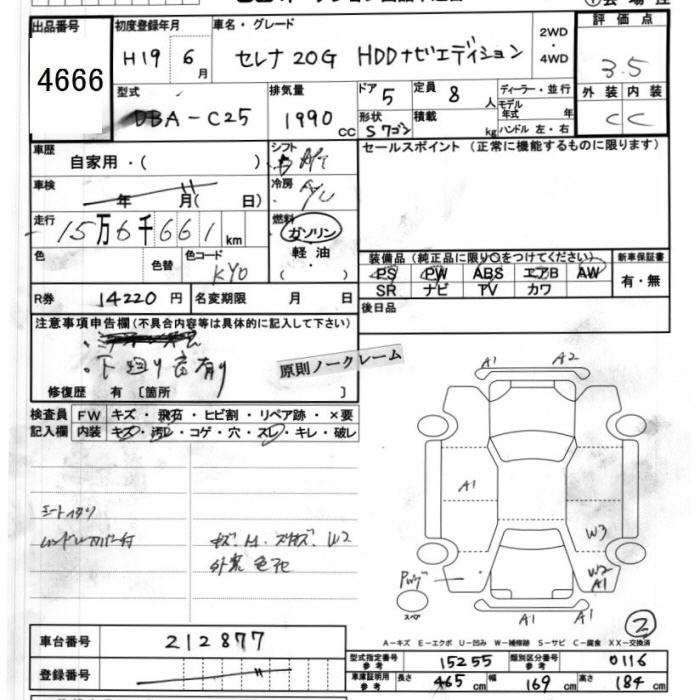 出品番号 初度登録年月 車名・グレード 2WD・4WD 評価点
4666 H19 6月 セレナ 20G HDDナビエディション 3.5
型式 排気量 ドア 5 定員 8人 ディーラー・並行 外装 内装
DBA-C25 1990cc 形状 Sワゴン 積載 kg モデル年式 年 ハンドル 左・右 C C
車歴 自家用・( ) シフト AT セールスポイント(正常に機能するものに限ります)
車検 年 月( 日) 冷房 A/C
走行 15万6千661km 燃料 ガソリン 軽油 ・( )
色 色替 色コード KY0
装備品(純正品に限り○をつけてください) 新車保証書
PS PW ABS エアB AW 有・無
SR ナビ TV カワ
R券 14220円 名変期限 月 日 後日品
注意事項申告欄(不具合内容等は具体的に記入して下さい)
・下廻り音有り
原則ノークレーム
修復歴 有〔箇所 〕
検査員 FW キズ・飛石・ヒビ割・リペア跡・×要
記入欄 内装 キズ・汚レ・コゲ・穴・スレ・キレ・破レ
A1 A2
A1
W3
W2
A1
A1 A1
スペア
シートイタミ
キズ M. スリキズ. W2
外装 色花
2
A-キズ E-エクボ U-凹み W-補修跡 S-サビ C-腐食 XX-交換済
車台番号 212877
登録番号
型式指定番号 参考 15255 類別区分番号 参考 0116
車庫証明用 参考 長さ 465cm 幅 169cm 高さ 184cm